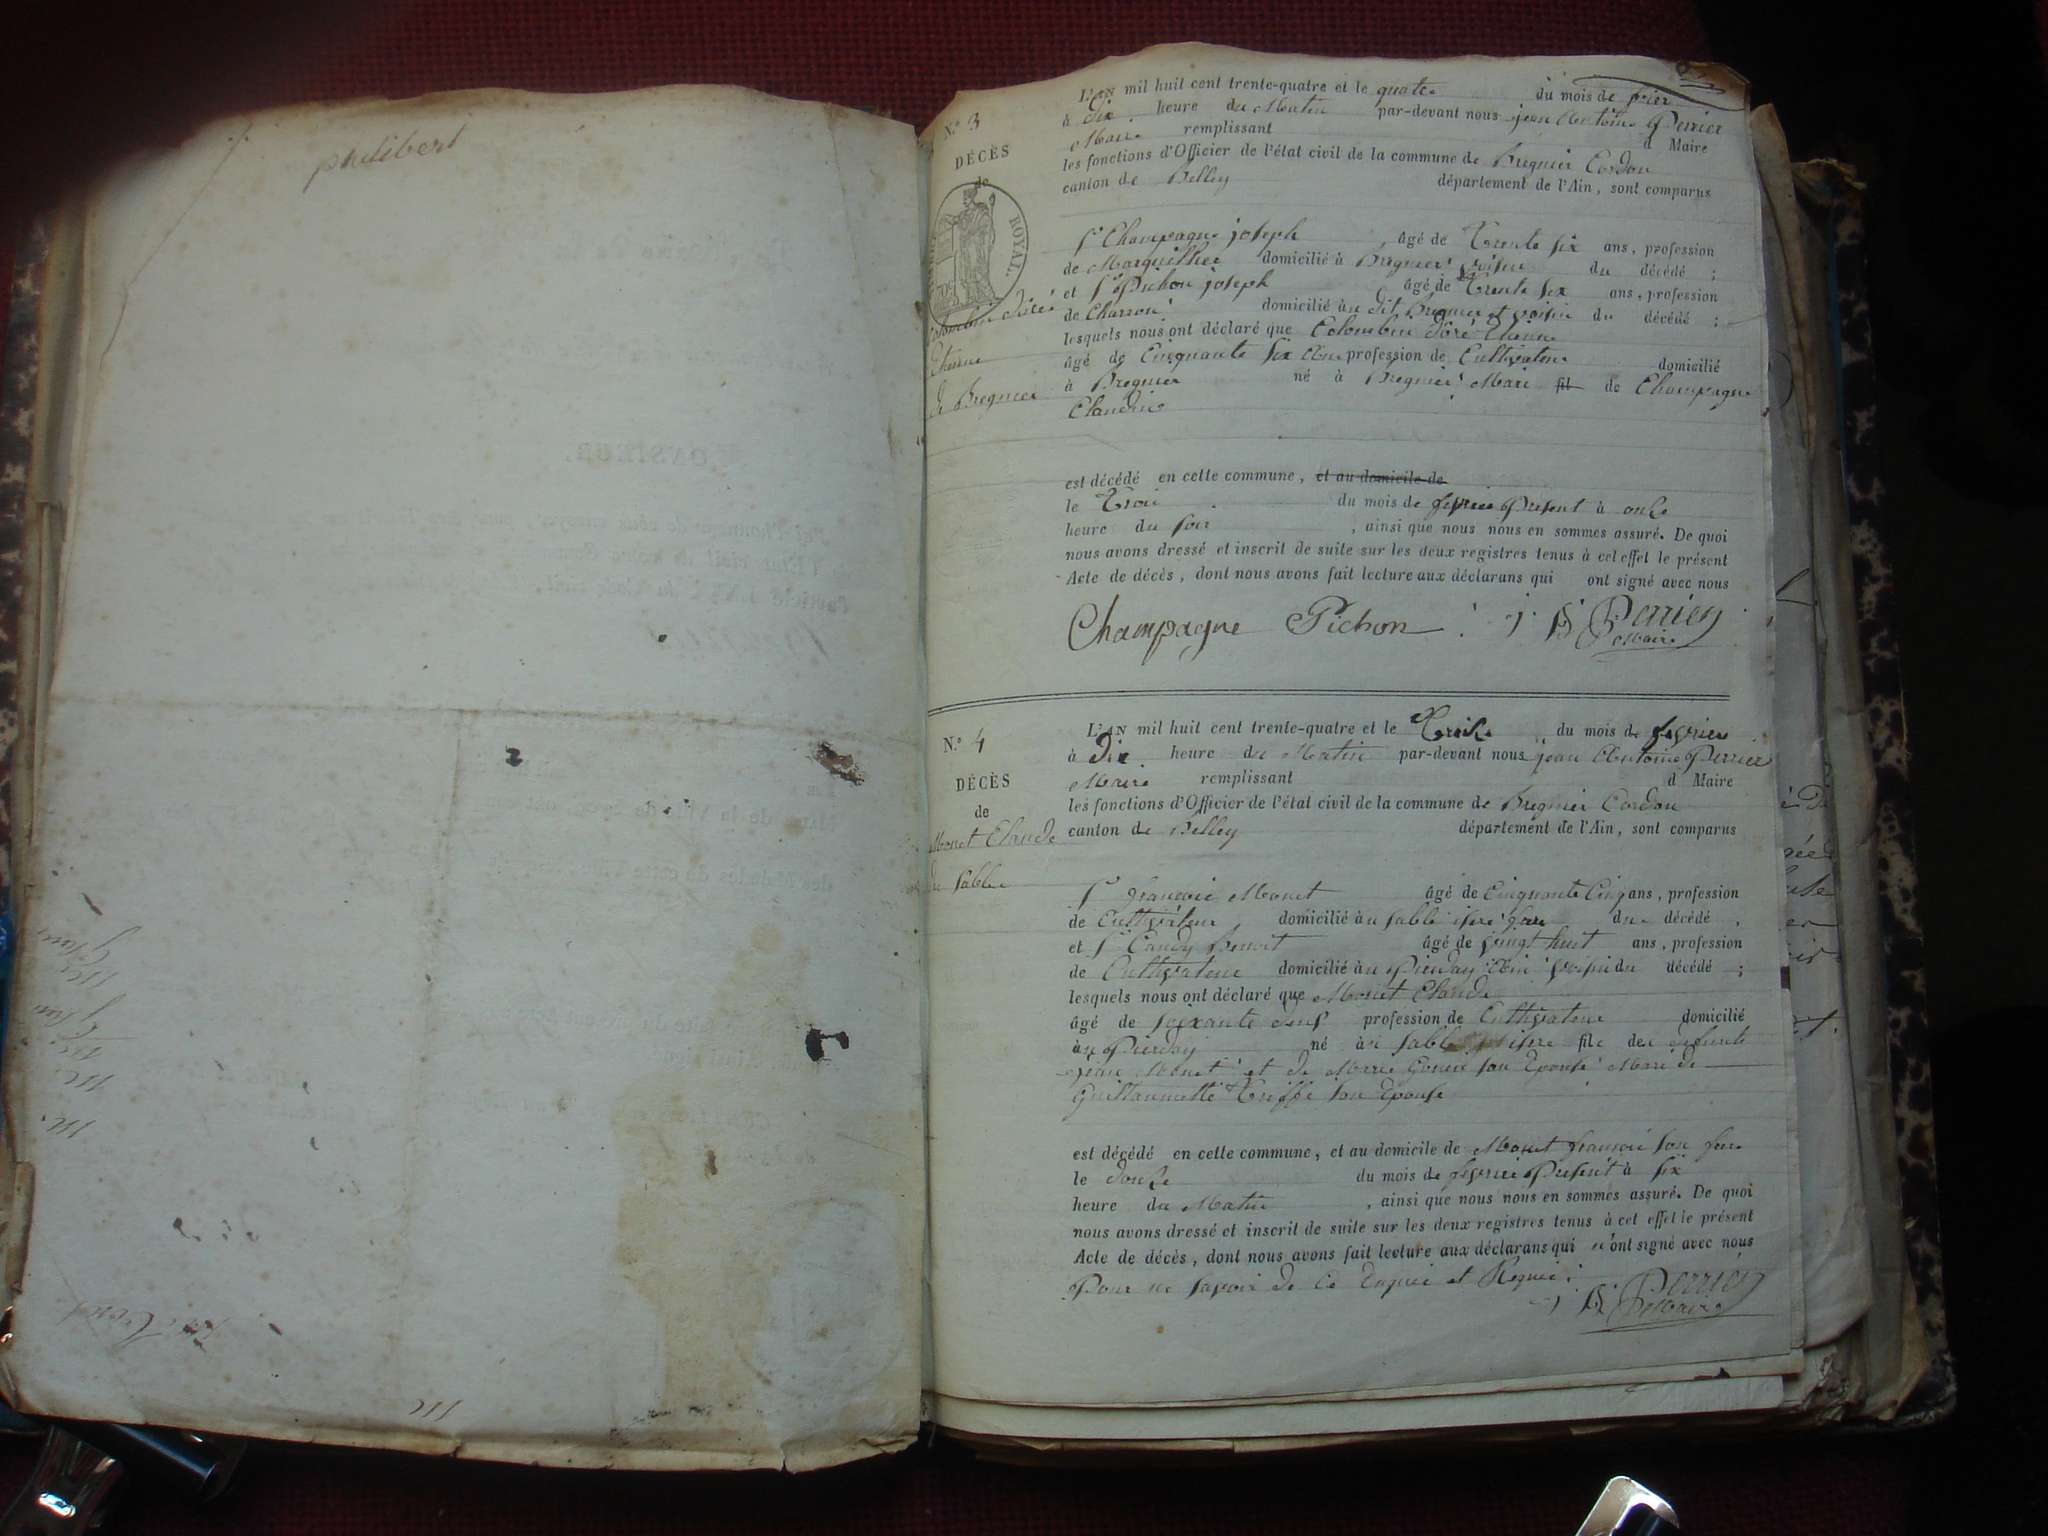 philibert
L'AN mil huit cent trente-quatre et le quatre du mois de
à Dix heure du Matin par-devant nous jean Antoine Perrier
Maire remplissant d Maire
les fonctions d'Officier de l'état civil de la commune de Bregnier Cordon
canton de Belley département de l'Ain, sont comparus
N.º 3
DÉCÈS
de
ROYAL.
Etienne
de Bregnier
Sr Champagne joseph âgé de Trente six ans, profession
de Marguillier domicilié à Bregnier voisin du décédé ;
et Sr Pichon joseph âgé de Trente six ans, profession
de Charron domicilié au dit Bregnier et voisin du décédé ;
lesquels nous ont déclaré que Colombin Etienne
âgé de Cinquante six Ans profession de Cultivateur domicilié
à Bregnier né à Bregnier Mari fil de Champagne
Claudine
est décédé en cette commune, et au domicile de
le Trois du mois de fevrier Present à onze
heure du soir , ainsi que nous nous en sommes assuré. De quoi
nous avons dressé et inscrit de suite sur les deux registres tenus à cet effet le présent
Acte de décès, dont nous avons fait lecture aux déclarans qui ont signé avec nous
Champagne Pichon Perrier
Maire
N.º 4
DÉCÈS
de
Monet Claude
du Sable
L'AN mil huit cent trente-quatre et le Treize du mois de fevrier
à Dix heure du Matin par-devant nous jean Antoine Perrier
Maire remplissant d Maire
les fonctions d'Officier de l'état civil de la commune de Bregnier Cordon
canton de Belley département de l'Ain, sont comparus
Sr françois Monet âgé de Cinquante Cinq ans, profession
de Cultivateur domicilié au Sable isere frere du décédé ,
et Sr Candy benoit âgé de vingt huit ans, profession
de Cultivateur domicilié au voisin du décédé ;
lesquels nous ont déclaré que Monet Claude
âgé de soixante profession de Cultivateur domicilié
au né au Sable isere fils de defunts
jean Monet et de Marie son Epouse Mari de
Guillaumette son Epouse
est décédé en cette commune, et au domicile de Monet françois son frere
le Douze du mois de fevrier Present à six
heure du Matin , ainsi que nous nous en sommes assuré. De quoi
nous avons dressé et inscrit de suite sur les deux registres tenus à cet effet le présent
Acte de décès, dont nous avons fait lecture aux déclarans qui n'ont signé avec nous
Pour ne savoir de ce Enquis et Requis
Perrier
Maire